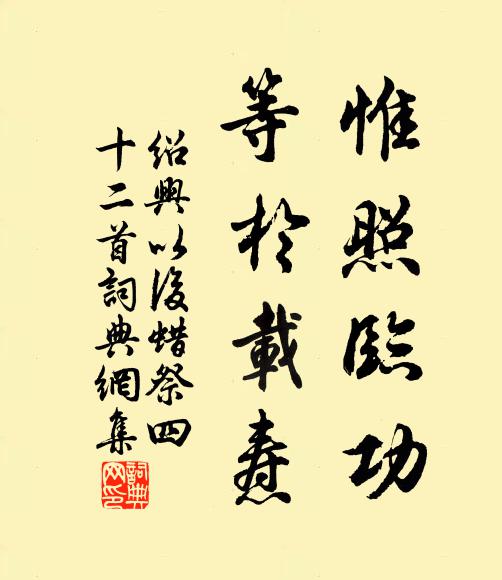 惟照臨功
等於載燾
紹興以後蜡祭四
十二首詞典網集
詞典
网印